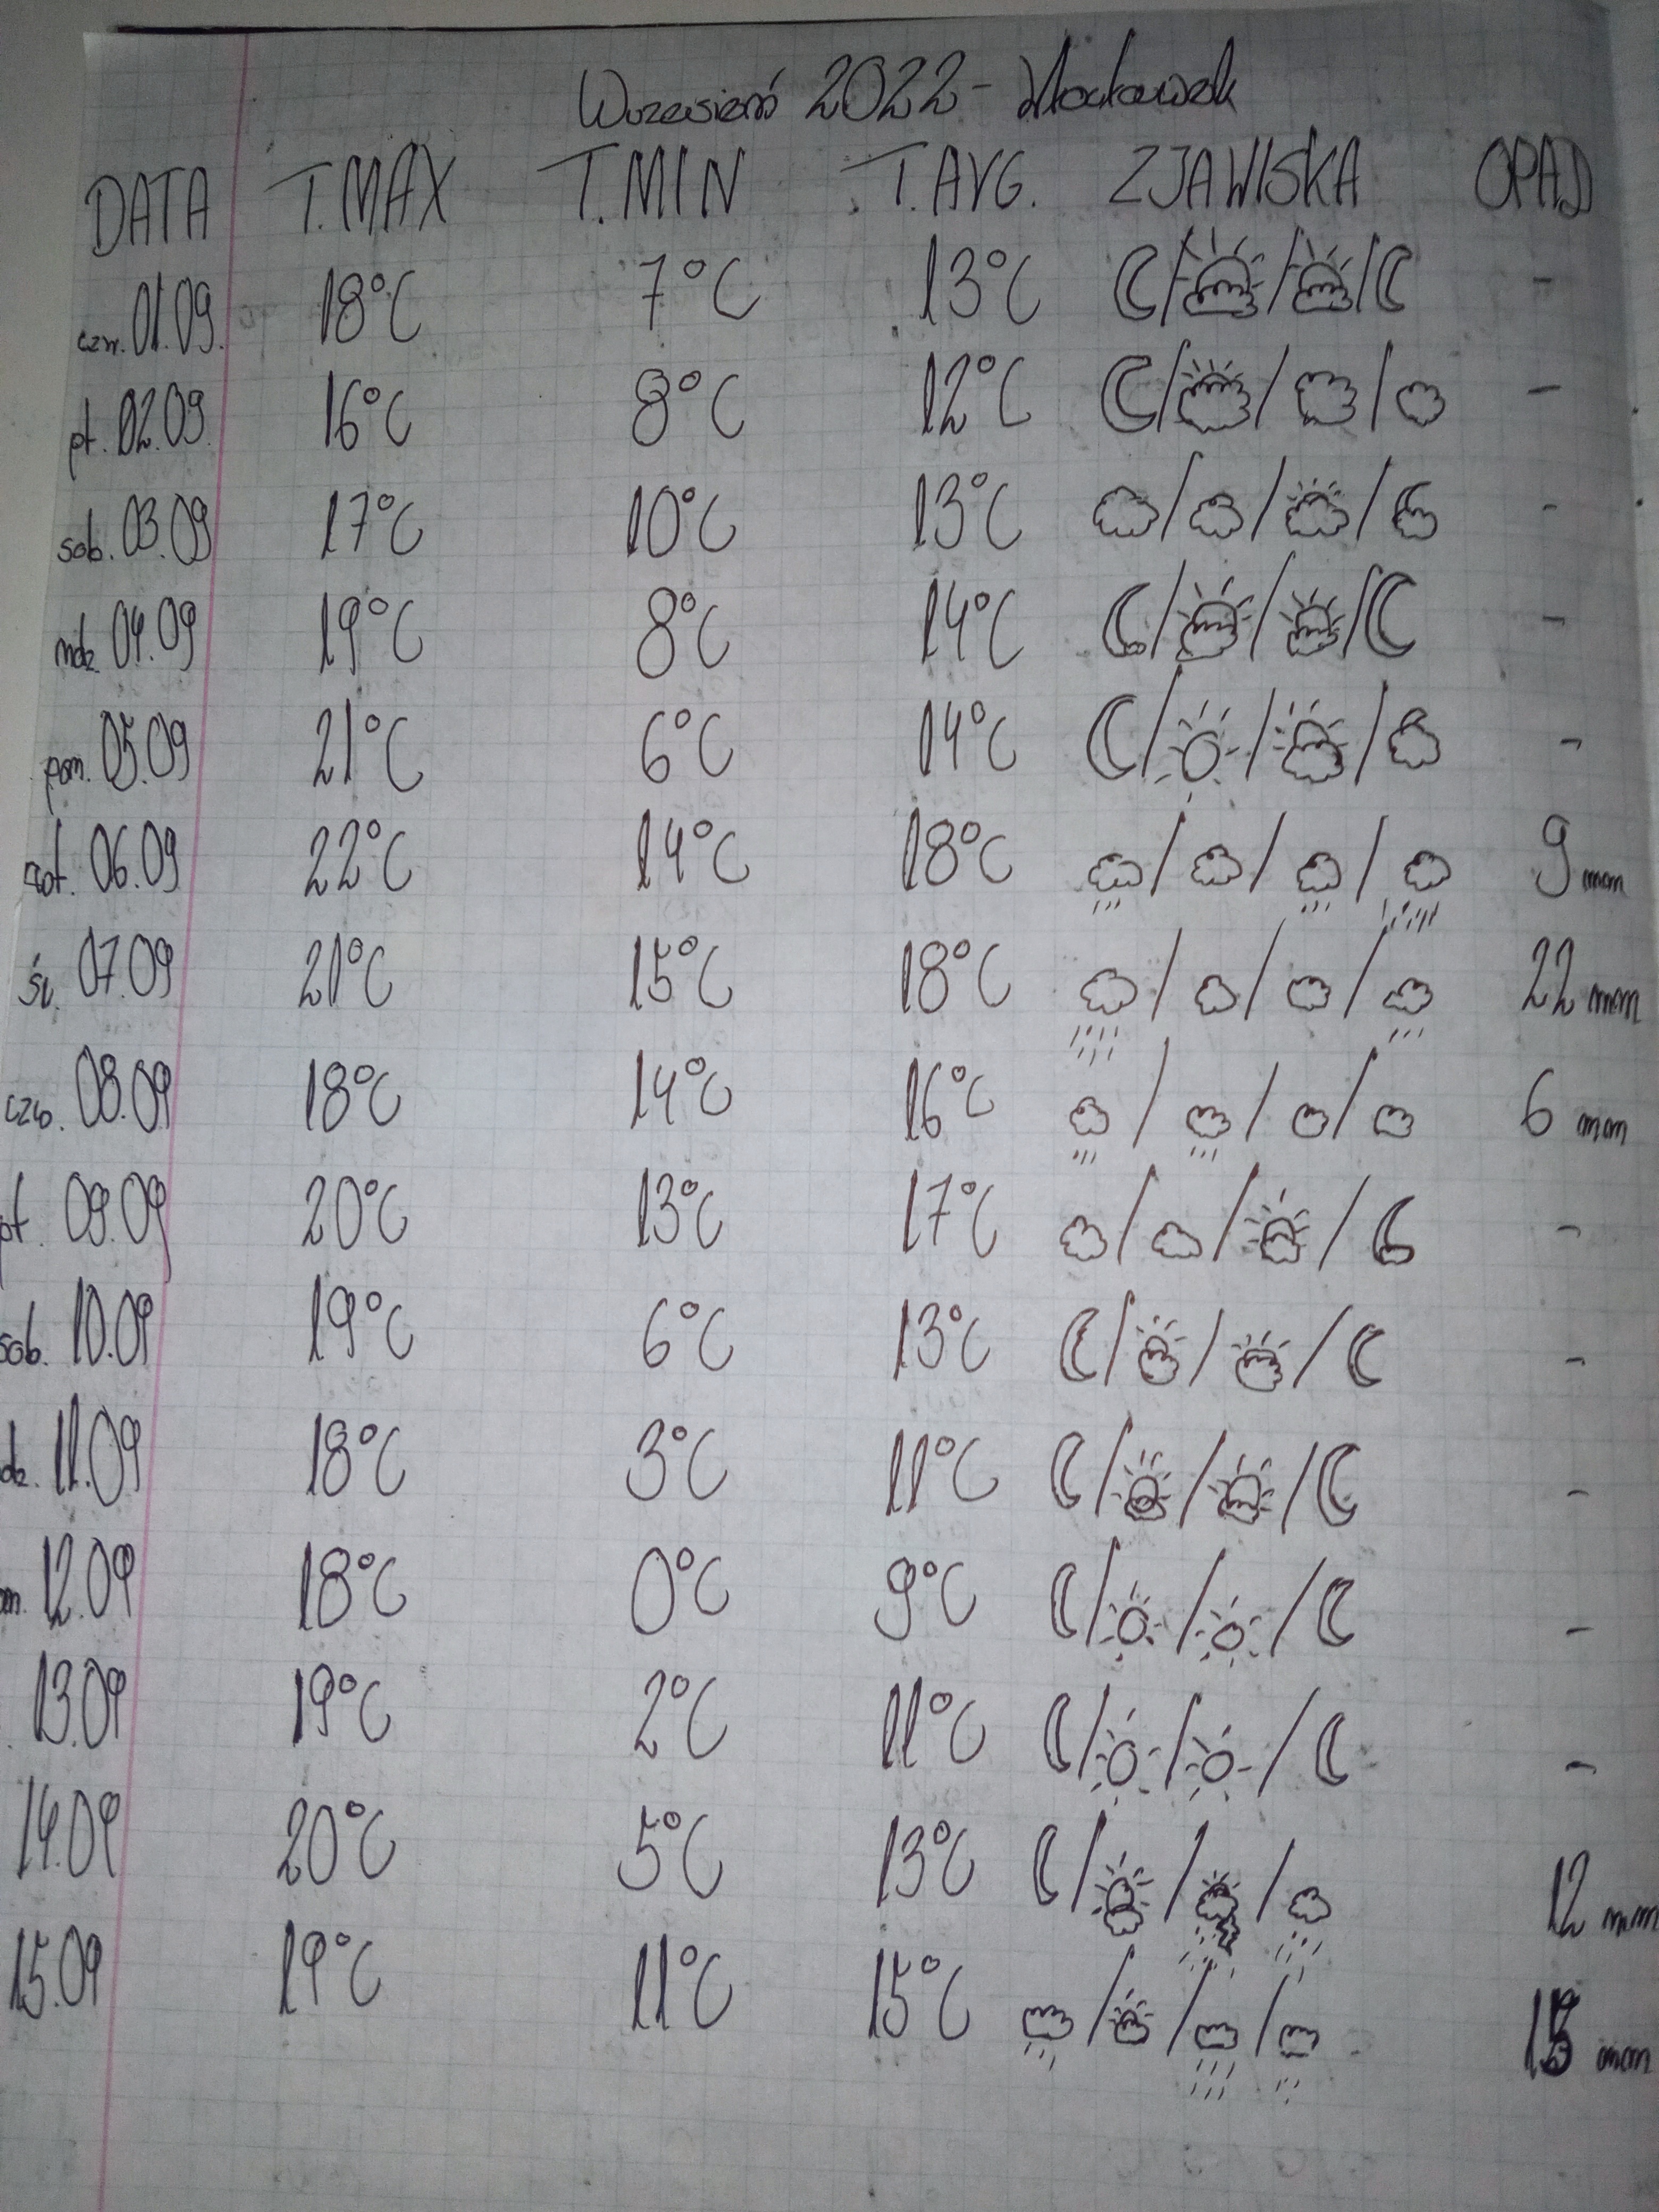 Wrzesień 2022 - Włocławek
DATA T.MAX T.MIN T.AVG. ZJAWISKA OPAD
czw. 01.09. 18°C 7°C 13°C / / / -
pt. 02.09. 16°C 8°C 12°C / / / -
sob. 03.09 17°C 10°C 13°C / / / -
ndz. 04.09 19°C 8°C 14°C / / / -
pon. 05.09 21°C 6°C 14°C / / / -
06.09 22°C 14°C 18°C / / / 9 mm
śr. 07.09 21°C 15°C 18°C / / / 22 mm
czw. 08.09 18°C 14°C 16°C / / / 6 mm
pt. 09.09 20°C 13°C 17°C / / / -
sob. 10.09 19°C 6°C 13°C / / / -
dz. 11.09 18°C 3°C 11°C / / / -
n. 12.09 18°C 0°C 9°C / / / -
. 13.09 19°C 2°C 11°C / / / -
14.09 20°C 5°C 13°C / / / 12 mm
15.09 19°C 11°C 15°C / / / mm